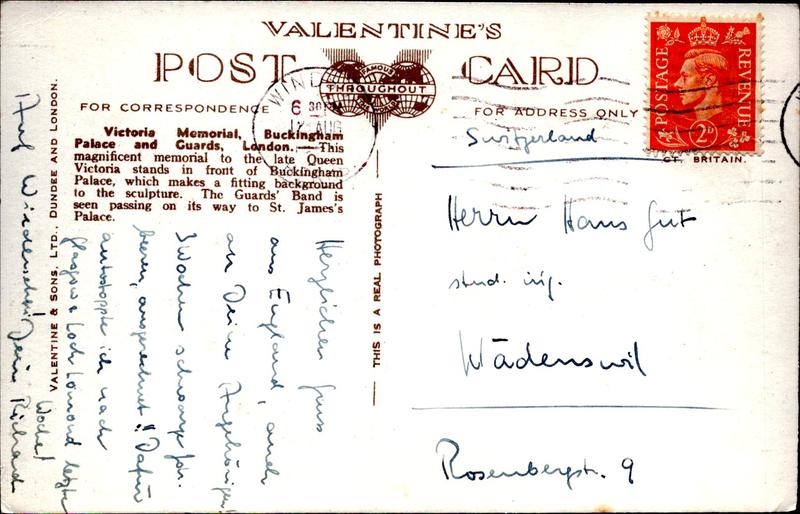 VALENTINE'S
POST CARD
FAMOUS
THROUGHOUT
FOR CORRESPONDENCE
FOR ADDRESS ONLY
Victoria Memorial, Buckingham
Palace and Guards, London.—This
magnificent memorial to the late Queen
Victoria stands in front of Buckingham
Palace, which makes a fitting background
to the sculpture. The Guards' Band is
seen passing on its way to St. James's
Palace.
VALENTINE & SONS, LTD., DUNDEE AND LONDON.
THIS IS A REAL PHOTOGRAPH
WIND
6 30PM
12 AUG
POSTAGE
REVENUE
2D
GT. BRITAIN.
Switzerland
Herrn Hans Gut
stud. ing.
Wädenswil
Rosenbergstr. 9
Herzlichen Gruss
aus England, auch
an Deine Angehörigen!
3 Wochen schwarze Joh.
beeren, ausgerechnet!! Dafür
autostoppte ich nach
Glasgow & Loch Lomond letzte
Woche!
Auf Wiedersehen! Dein Richard